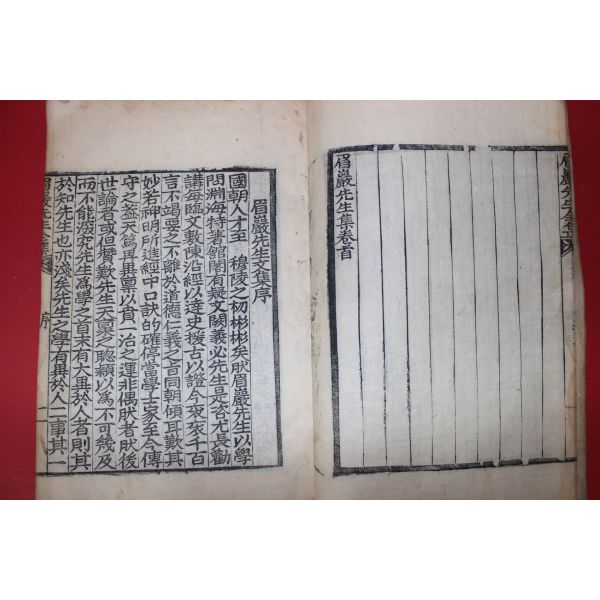 眉巖先生集卷首
眉巖先生文集序
國朝人才至 穆陵之初彬彬矣肰眉巖先生以學
問淵海特著館閣有疑文闕義必先生是咨尤長勸
講每臨文敷陳沿經以達史援古以證今亹亹千百
言不竭要之不離於道德仁義之旨同朝傾耳歎其
妙若神明所進經中口訣的確停當學士家至今傳
守之盖天爲再畁禀以貴一治之運非偶肰者肰後
世論者或但贊歎先生天禀之聰纇以爲不可幾及
而不能深究先生爲學之首末有大異於人者則其
於知先生也亦淺矣先生之學有異於人二事其一
序
一